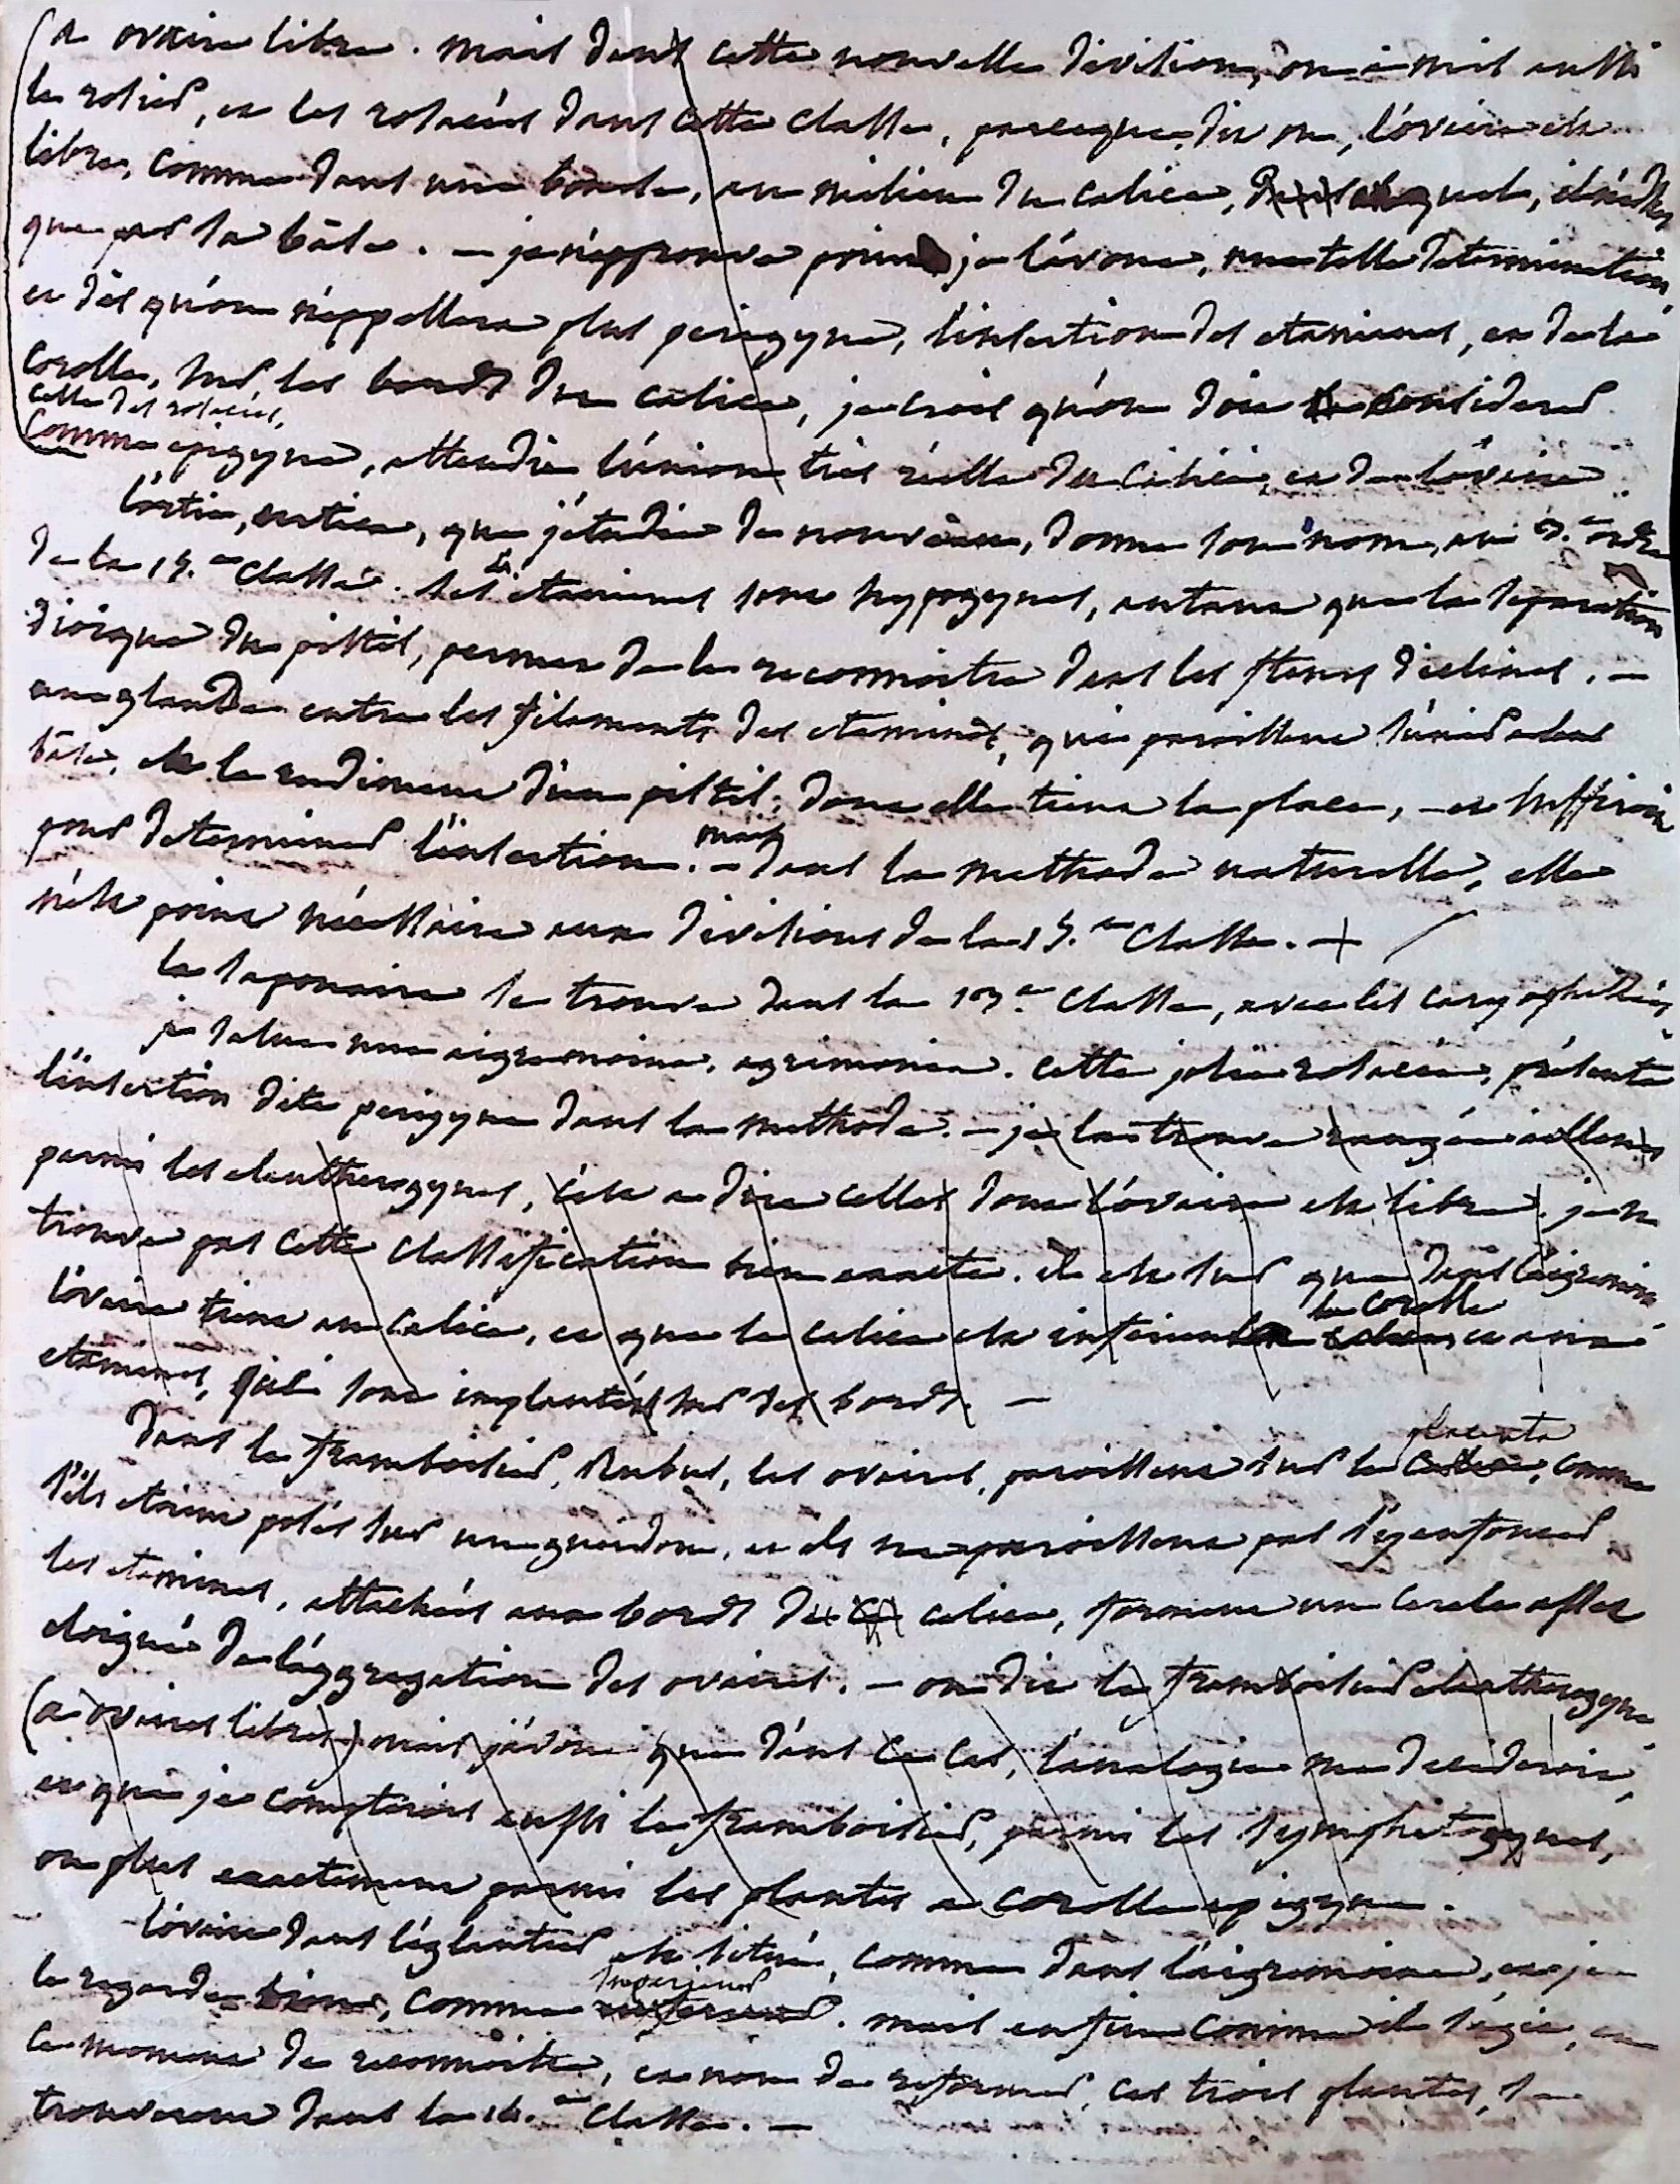 a ovaire libre. mais dans cette nouvelle division, on a mis aussi
le rosier, et les rosacées dans cette classe, parceque, dit on, l'ovaire est
libre, comme dans une bourse, au milieu du calice, auquel, il n'adhere
que par sa bâse. — je n'approuve point je l'avoue, une telle determination
et dès qu'on n'appellera plus perigyne, l'insertion des etamines, et de la
corolle, sur les bords du calice, je crois qu'on doit considerer
celle des rosacées,
comme epigyne, attendu l'union très réelle du calice et de l'ovaire
l'ortie, urtica, que j'étudie de nouveau, donne son nom, au 3.e ordre
de la 15.e classe. les etamines sont hypogynes, autant que la separation
dioique du pistil, permet de le reconnoitre dans les fleurs diclines. —
une glande entre les filaments des etamines, qui paroissent s'unir a leur
bâse, est le rudiment d'un pistil, dont elle tient la place, — et suffiroit
pour determiner l'insertion. — mais dans la methode naturelle, elle
n'est point nécessaire aux divisions de la 15.e classe. +
la saponaire se trouve dans la 13.e classe, avec les caryophyllées
je salue une aigremoine, agrimonia. cette jolie rosacée, présente
l'insertion dite perigyne dans la methode. — je la trouve rangée ailleurs
parmi les eleutherogynes, c'est a dire celles dont l'ovaire est libre. je ne
trouve pas cette classification bien exacte. il est sur que dans l'aigremoine
l'ovaire tient au calice, et que le calice est inferieur a la corolle et aux
etamines, qui sont implantés sur ses bords. —
dans le framboisier, Rubus, les ovaires, paroissent sur le placenta, comme
s'ils etoient posés sur un gueridon, et ils ne paroissent pas s'y enfoncer
les etamines, attachées aux bords du calice, forment un cercle assez
eloigné de l'aggregation des ovaires. — on dit le framboisier eleutherogyne
(a ovaires libres) mais j'avoue que dans ce cas, l'analogie me decideroit,
et que je compterois aussi le framboisier, parmi les symphytogynes,
ou plus exactement parmi les plantes a corolle epigyne.
l'ovaire dans l'eglantier est situé, comme dans l'aigremoine, et je
le regarde, comme superieur. mais enfin comme il s'agit, en
ce moment de reconnoitre, et non de reformer, ces trois plantes, se
trouveront dans la 14.e classe. —